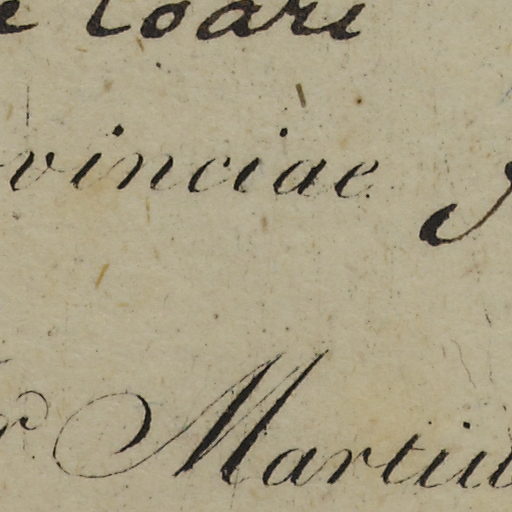 e Coari
vinciae
r Martiu